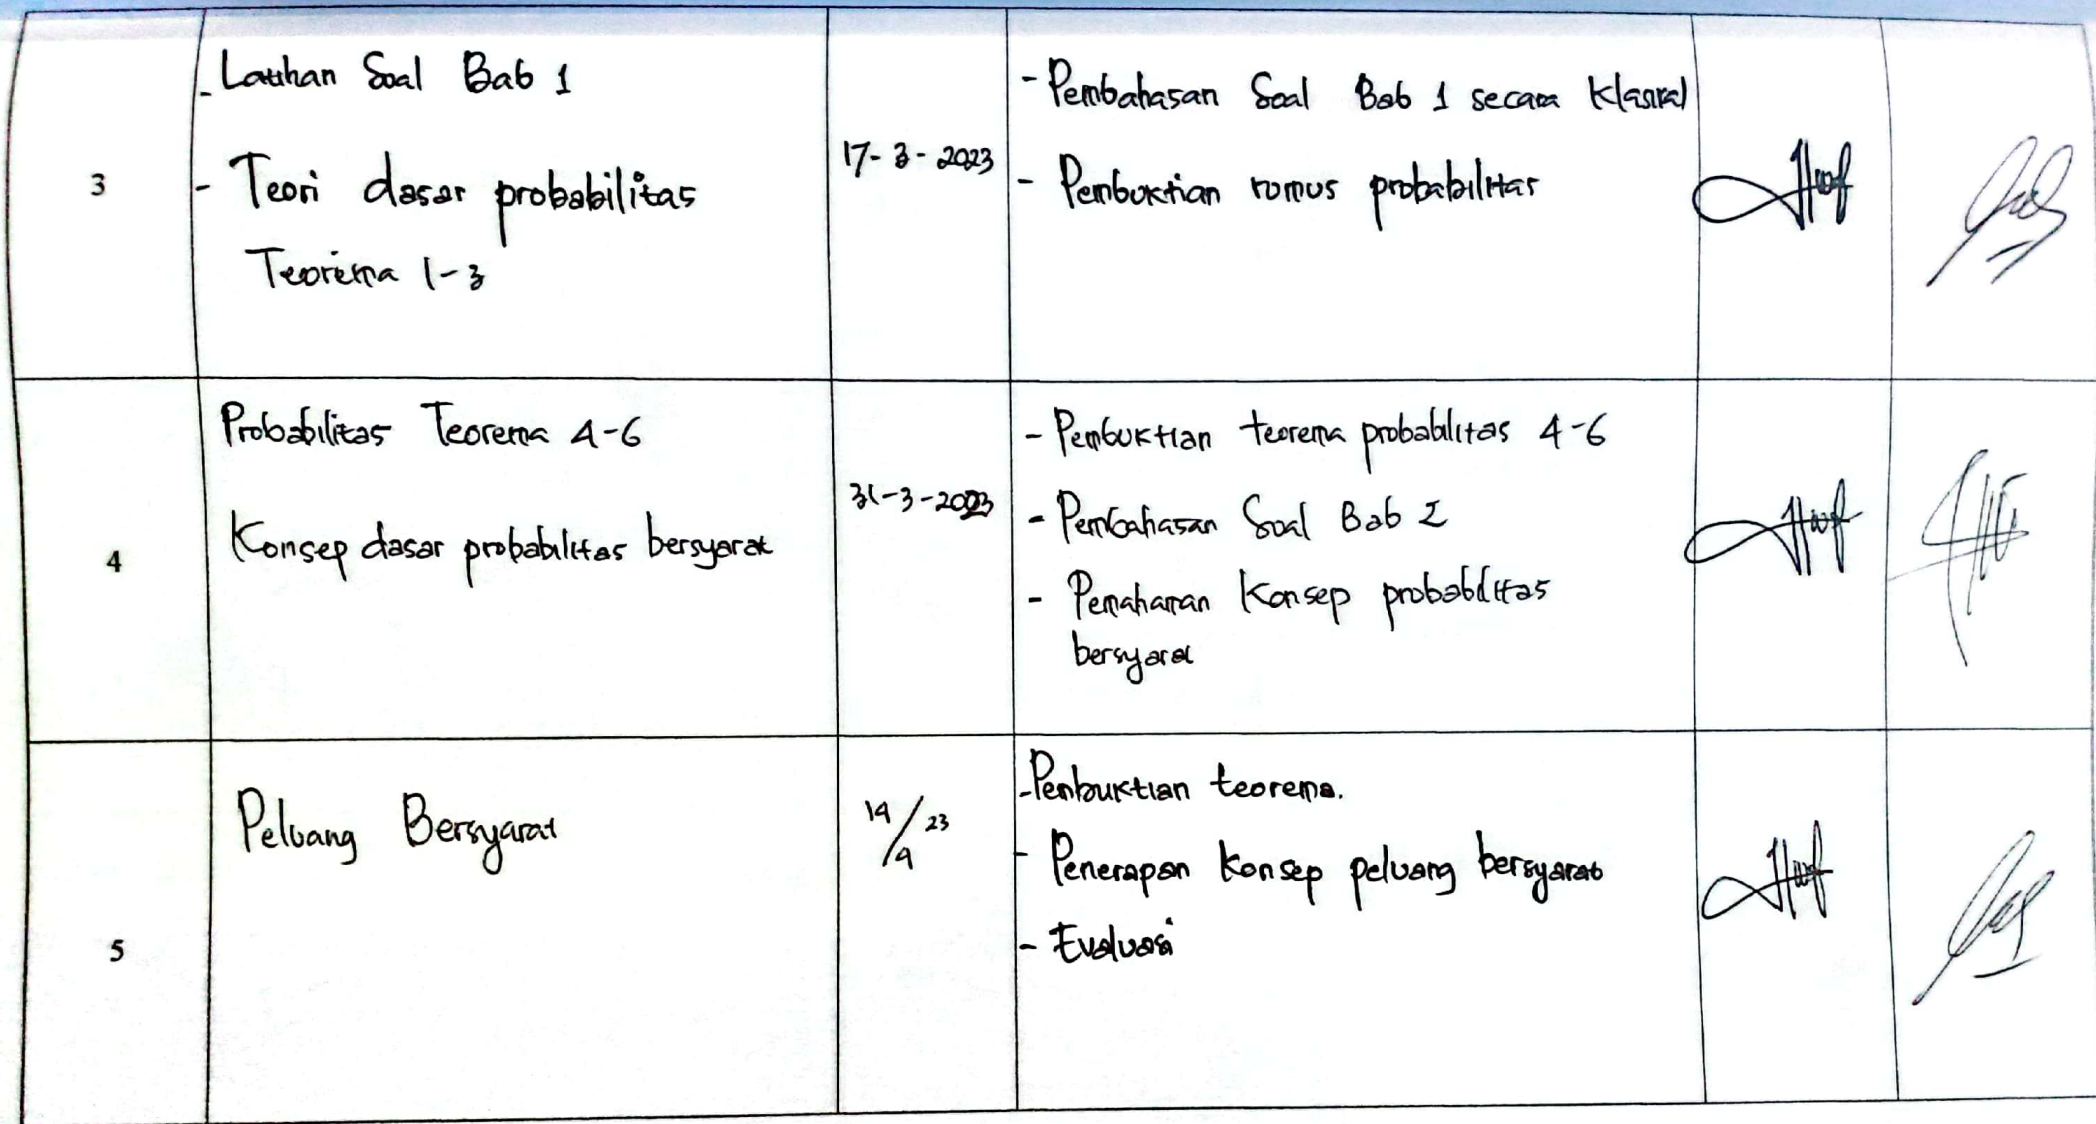 3
- Latihan Soal Bab 1
- Teori dasar probabilitas
Teorema 1-3
17-3-2023
- Pembahasan Soal Bab 1 secara klasikal
- Pembuktian rumus probabilitas
4
Probabilitas Teorema 4-6
Konsep dasar probabilitas bersyarat
31-3-2023
- Pembuktian teorema probabilitas 4-6
- Pembahasan Soal Bab 2
- Pemahaman Konsep probabilitas
bersyarat
5
Peluang Bersyarat
14/4 23
- Pembuktian teorema.
- Penerapan konsep peluang bersyarat
- Evaluasi